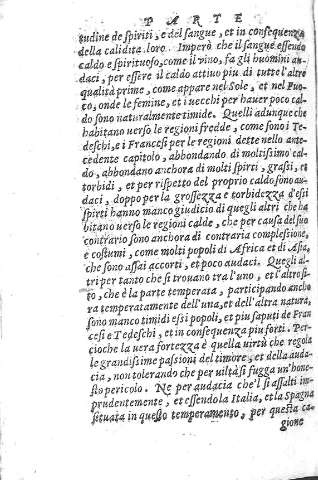 PARTE
tudine de spiriti, e del sangue, et in consequenza
della calidita loro. Imperò che il sangue essendo
caldo e spirituoso, come il vino, fa gli huomini au-
daci, per essere il caldo attiuo piu di tutte l'altre
qualità prime, come appare nel Sole, et nel Fuo-
co, onde le femine, et i uecchi per hauer poco cal-
do sono naturalmente timide. Quelli adunque che
habitano uerso le regioni fredde, come sono i Te-
deschi, e i Francesi per le regioni dette nello ante-
cedente capitolo, abbondando di moltissimo cal-
do, abbondano anchora di molti spirti, grassi, et
torbidi, et per rispetto del proprio caldo sono au-
daci, doppo per la grossezza e torbidezza d'essi
spirti hanno manco giudicio di quegli altri che ha
bitano uerso le regioni calde, che per causa del suo
contrario sono anchora di contraria complessione,
e costumi, come molti popoli di Africa et di Asia,
che sono assai accorti, et poco audaci. Quegli al-
tri per tanto che si trouano tra l'uno, et l'altro si-
to, che è la parte temperata, participando ancho
ra temperatamente dell'una, et dell'altra natura,
sono manco timidi essi popoli, et piu saputi de Fran
cesi e Tedeschi, et in consequenza piu forti. Per-
cioche la uera fortezza è quella uirtù che regola
le grandissime passioni del timore, et della auda-
cia, non tolerando che per uiltà si fugga un'hone-
sto pericolo. Ne per audacia che'l si assalti im-
prudentemente, et essendo la Italia, et la Spagna
situata in questo temperamento, per questa ca-
gione